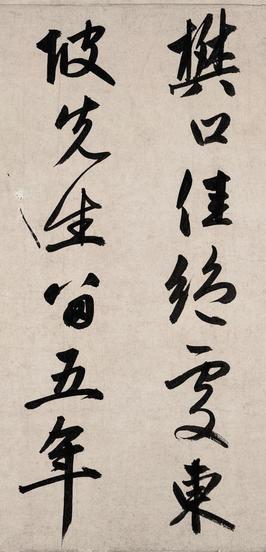 樊口佳絶處東
坡先生留五年